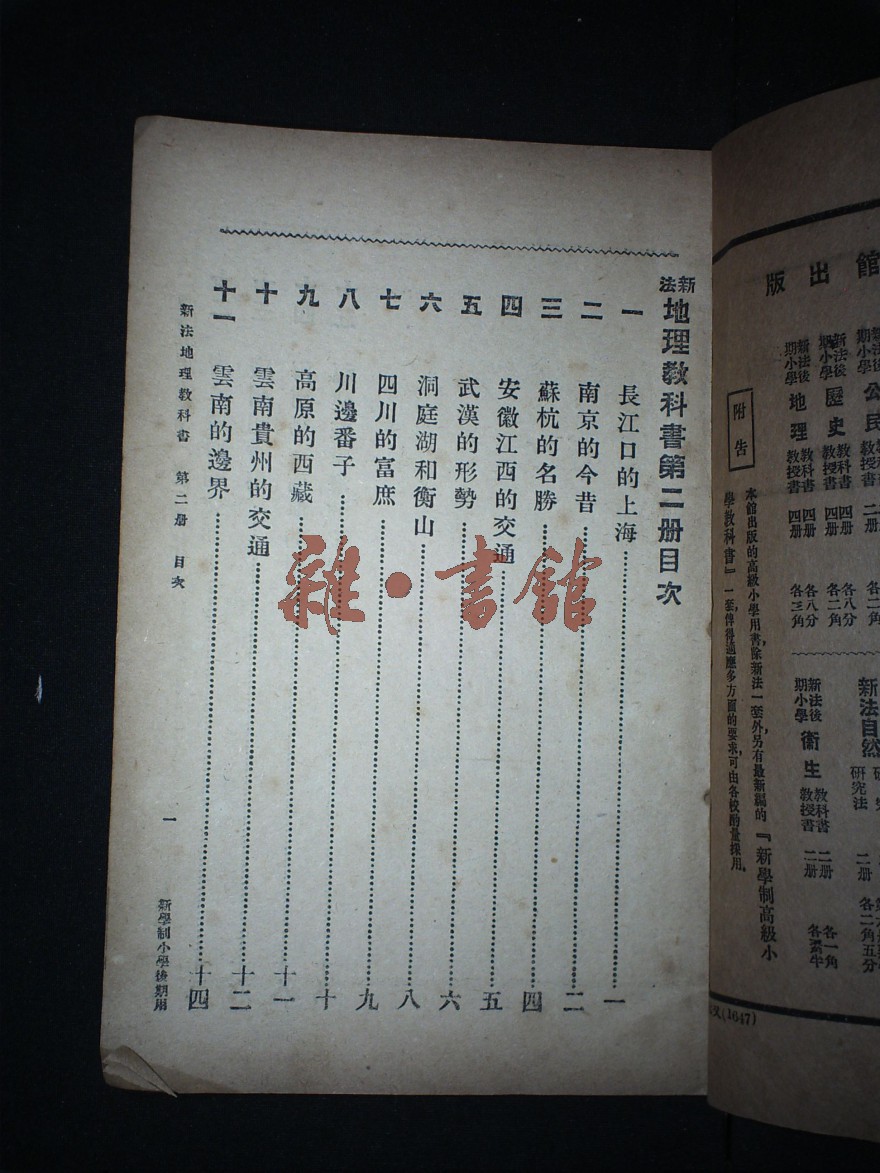 館出版
公民
新法後期小學 歷史 教科書 四册 各八分 教授書 四册 各二角
新法後期小學 地理 教科書 四册 各八分 教授書 四册 各三角
新法自然
研究法 二册
新法後期小學 衞生 教科書 二册 各一角 教授書 二册
附告
本館出版的高級小學用書,除新法一套外,另有最新編的『新學制高級小
學教科書』一套,俾得適應多方面的要求,可由各校酌量採用。
(1647)
新法地理教科書第二册目次
一 長江口的上海 一
二 南京的今昔 二
三 蘇杭的名勝 四
四 安徽江西的交通 五
五 武漢的形勢 六
六 洞庭湖和衡山 八
七 四川的富庶 九
八 川邊番子 十
九 高原的西藏 十一
十 雲南貴州的交通 十二
十一 雲南的邊界 十四
新法地理教科書 第二册 目次
一
新學制小學後期用
雜·書館